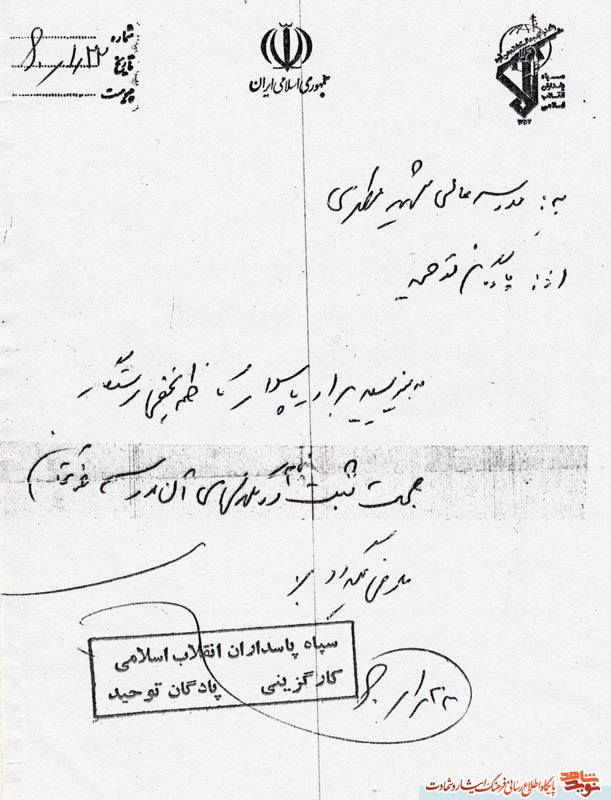 شماره
تاریخ ۶۰/۱/۲۳
پیوست
جمهوری اسلامی ایران
سپاه
پاسداران
انقلاب
اسلامی
۱۳۵۷
به: مدرسه عالی شهید مطهری
از: پادگان توحید
بدینوسیله برادر پاسدار کاظم نجفی رستگار
جهت ثبت نام در کلاسهای آن مدرسه
معرفی میگردد
سپاه پاسداران انقلاب اسلامی
کارگزینی پادگان توحید
نوید شاهد
پایگاه اطلاع رسانی فرهنگ ایثار و شهادت